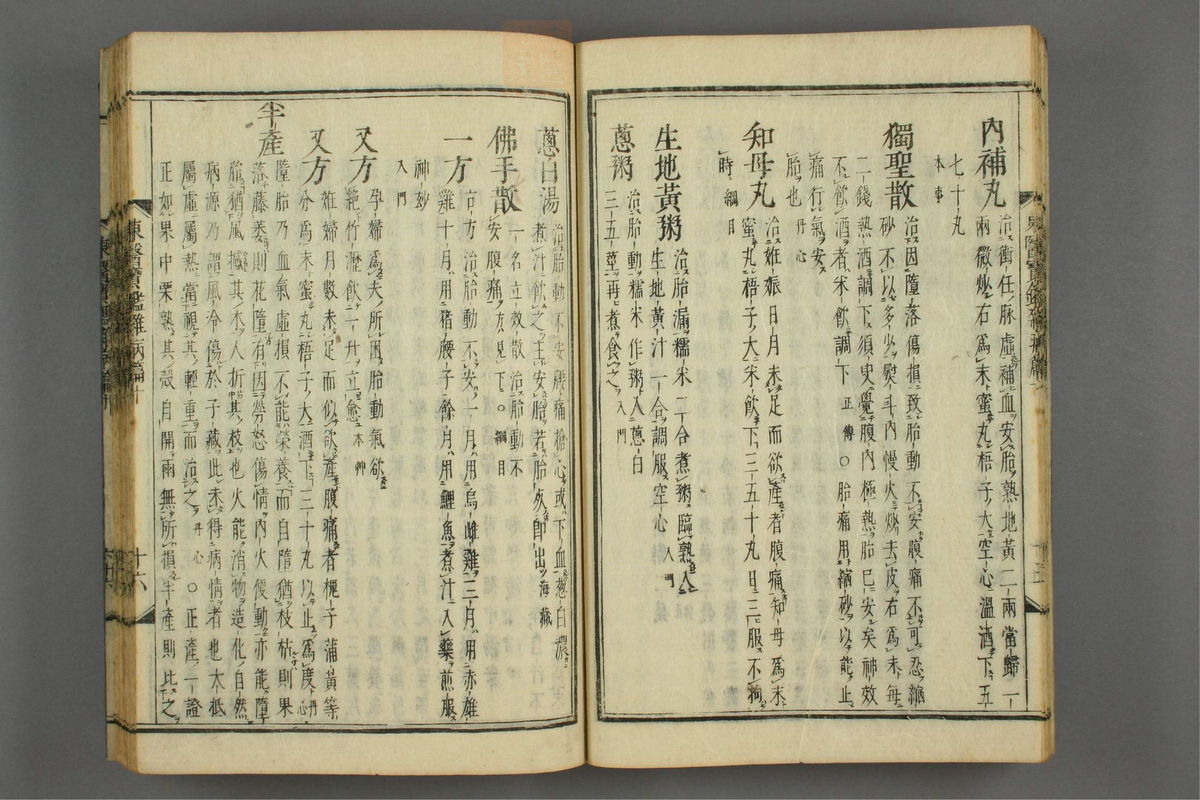 內補丸 治衝任脉虛補血安胎熟地黃二兩當歸一
兩微炒右爲末蜜丸梧子大空心溫酒下五
七十丸
本事
獨聖散 治因墮落傷損致胎動不安腹痛不可忍縮
砂不以多少熨斗內慢火炒去皮右爲末每
二錢熱酒調下須臾覺腹內極熱胎已安矣神效
不飮酒者米飮調下 正傳 ○胎痛用縮砂以能止
痛行氣安
胎也 丹心
知母丸 治姙娠日月未足而欲產者腹痛知母爲末
蜜丸梧子大米飮下三五十丸日三服不拘
時 綱目
生地黃粥 治胎漏糯米二合煮粥臨熟入
生地黃汁一合調服空心 入門
蔥粥 治胎動糯米作粥入蔥白
三五莖再煮食之 入門
蔥白湯 治胎動不安腰痛搶心或下血葱白濃
煮汁飮之生安胎若胎死卽出 海藏
佛手散 一名立效散治胎動不
安腹痛方見下○ 綱目
一方 古方治胎動不安子一月用烏雌雞三月用赤雄
雞十月用猪腰子餘月用鯉魚煮汁入藥煎服
神妙
入門
又方 孕婦爲夫所困胎動氣欲
絶竹瀝飮一升立愈 本艸
又方 姙婦月數未足而似欲產腹痛者梔子蒲黃等
分爲末蜜丸梧子大酒下三十丸以止爲度 丹心
半產 墮胎乃血氣虛損不能榮養而自墮猶枝枯則果
落藤萎則花墮有因勞怒傷情內火便動亦能墮
胎猶風撼其木人折其枝也火能消物造化自然
病源乃謂風冷傷於子藏此未得病情者也大抵
屬虛屬熱當視其輕重而治之 丹心 ○正產一證
正如果中栗熟其殻自開兩無所損半產則比之
東醫寶鑑雜病篇十
十六